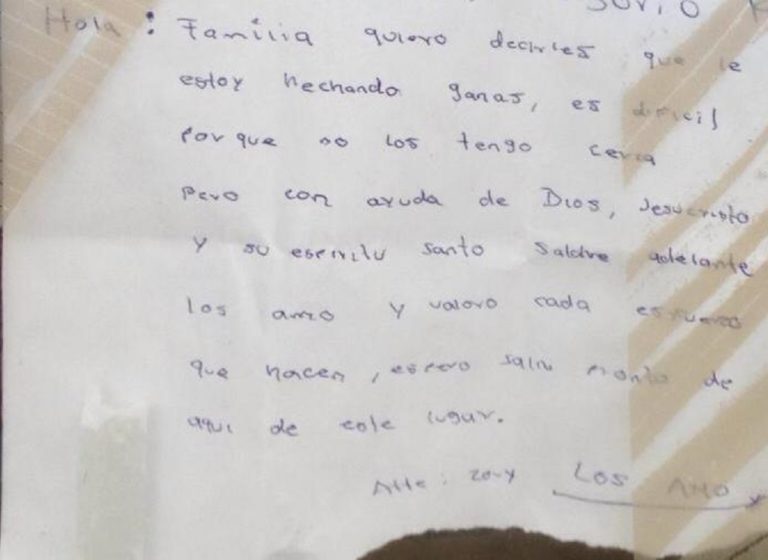 Hola : Familia quiero decirles que le
estoy hechando ganas, es dificil
Porque no los tengo cerca
Pero con ayuda de Dios, Jesucristo
y su espiritu santo Saldre adelante
los amo y valoro cada esfuerzo
que hacen, espero salir pronto de
aqui de este lugar.
Atte: Los AMO